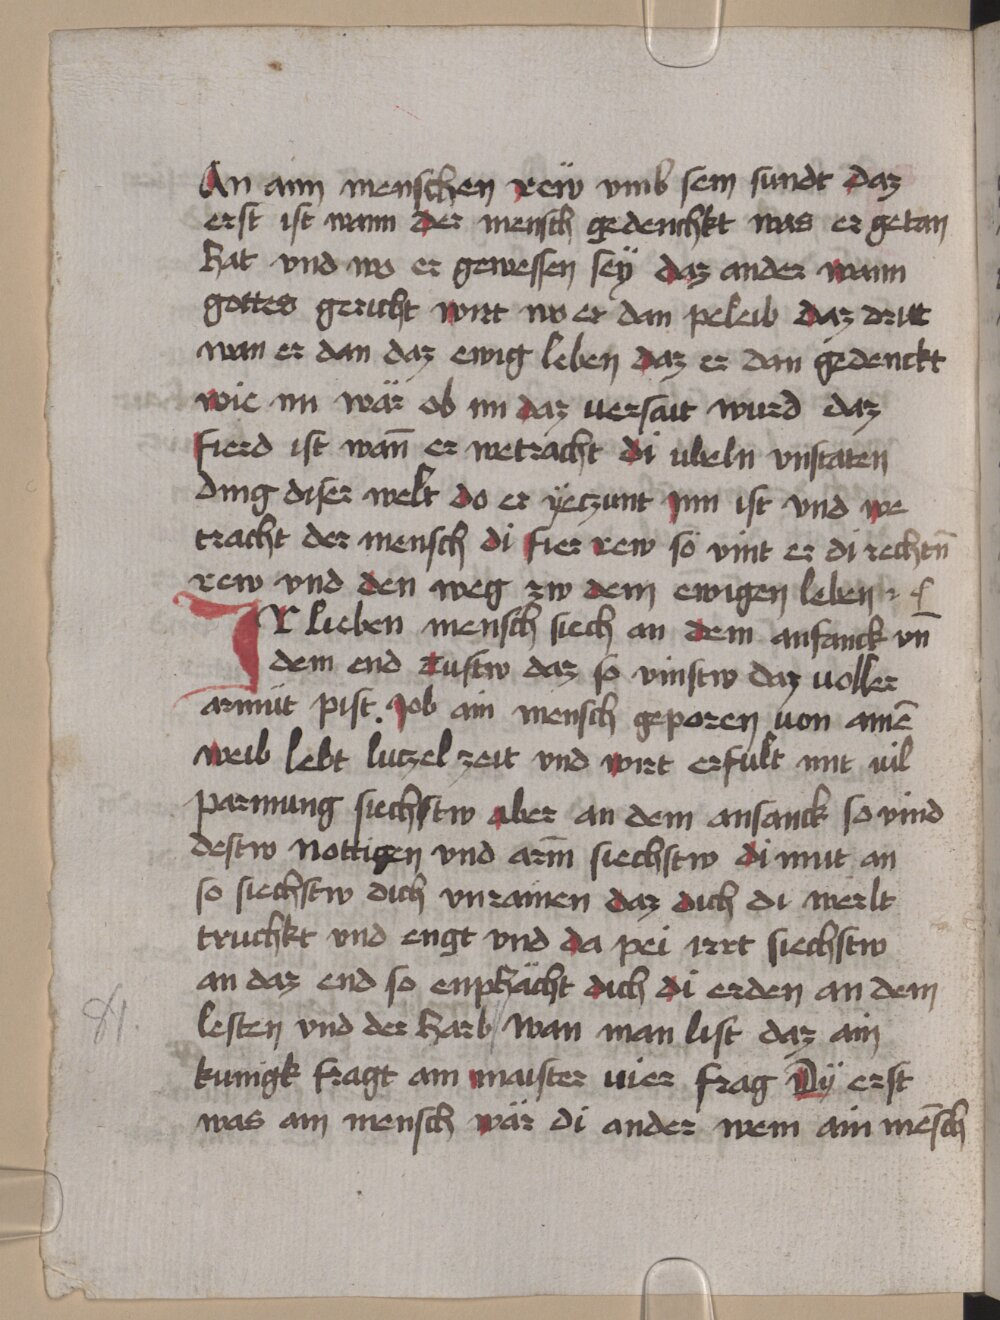 An ainn menschen rew vmb sein sundt daz
erst ist wann der mensch gedenchkt was er getan
hat vnd wo er gewessen seÿ daz ander wann
gottes gericht wirt wo er dan peleib daz dritt
wan er dan daz ewig leben daz er dan gedenckt
wie im wär ob im daz uersait wurd daz
fierd ist wan̄ er wetracht di ubeln vnstaten
ding diser welt do er ÿeczunt inn ist vnd we
tracht der mensch di fier rew so vint er di rechtn̄
rew vnd den weg zw dem ewigen leben
Ir lieben mensch siech an dem anfanck vn̄
dem end tustw daz so vinstw daz uoller
armüt pist. Job ain mensch geporen uon aine̅
weib lebt luczel zeit vnd wirt erfult mit uil
parmung siechstw aber an dem anfanck so vind
destw nottigen vnd arm̄ siechstw di mitt an
so siechstw dich vnrainen daz dich di werlt
truchkt vnd engt vnd da pei irrt siechstw
an daz end so enphächt dich di erden an dem
lesten vnd der harb wan man list daz ain
kunigk fragt ain maister uier frag Dÿ erst
was ain mensch wär di ander wem ain me̅sch
81.